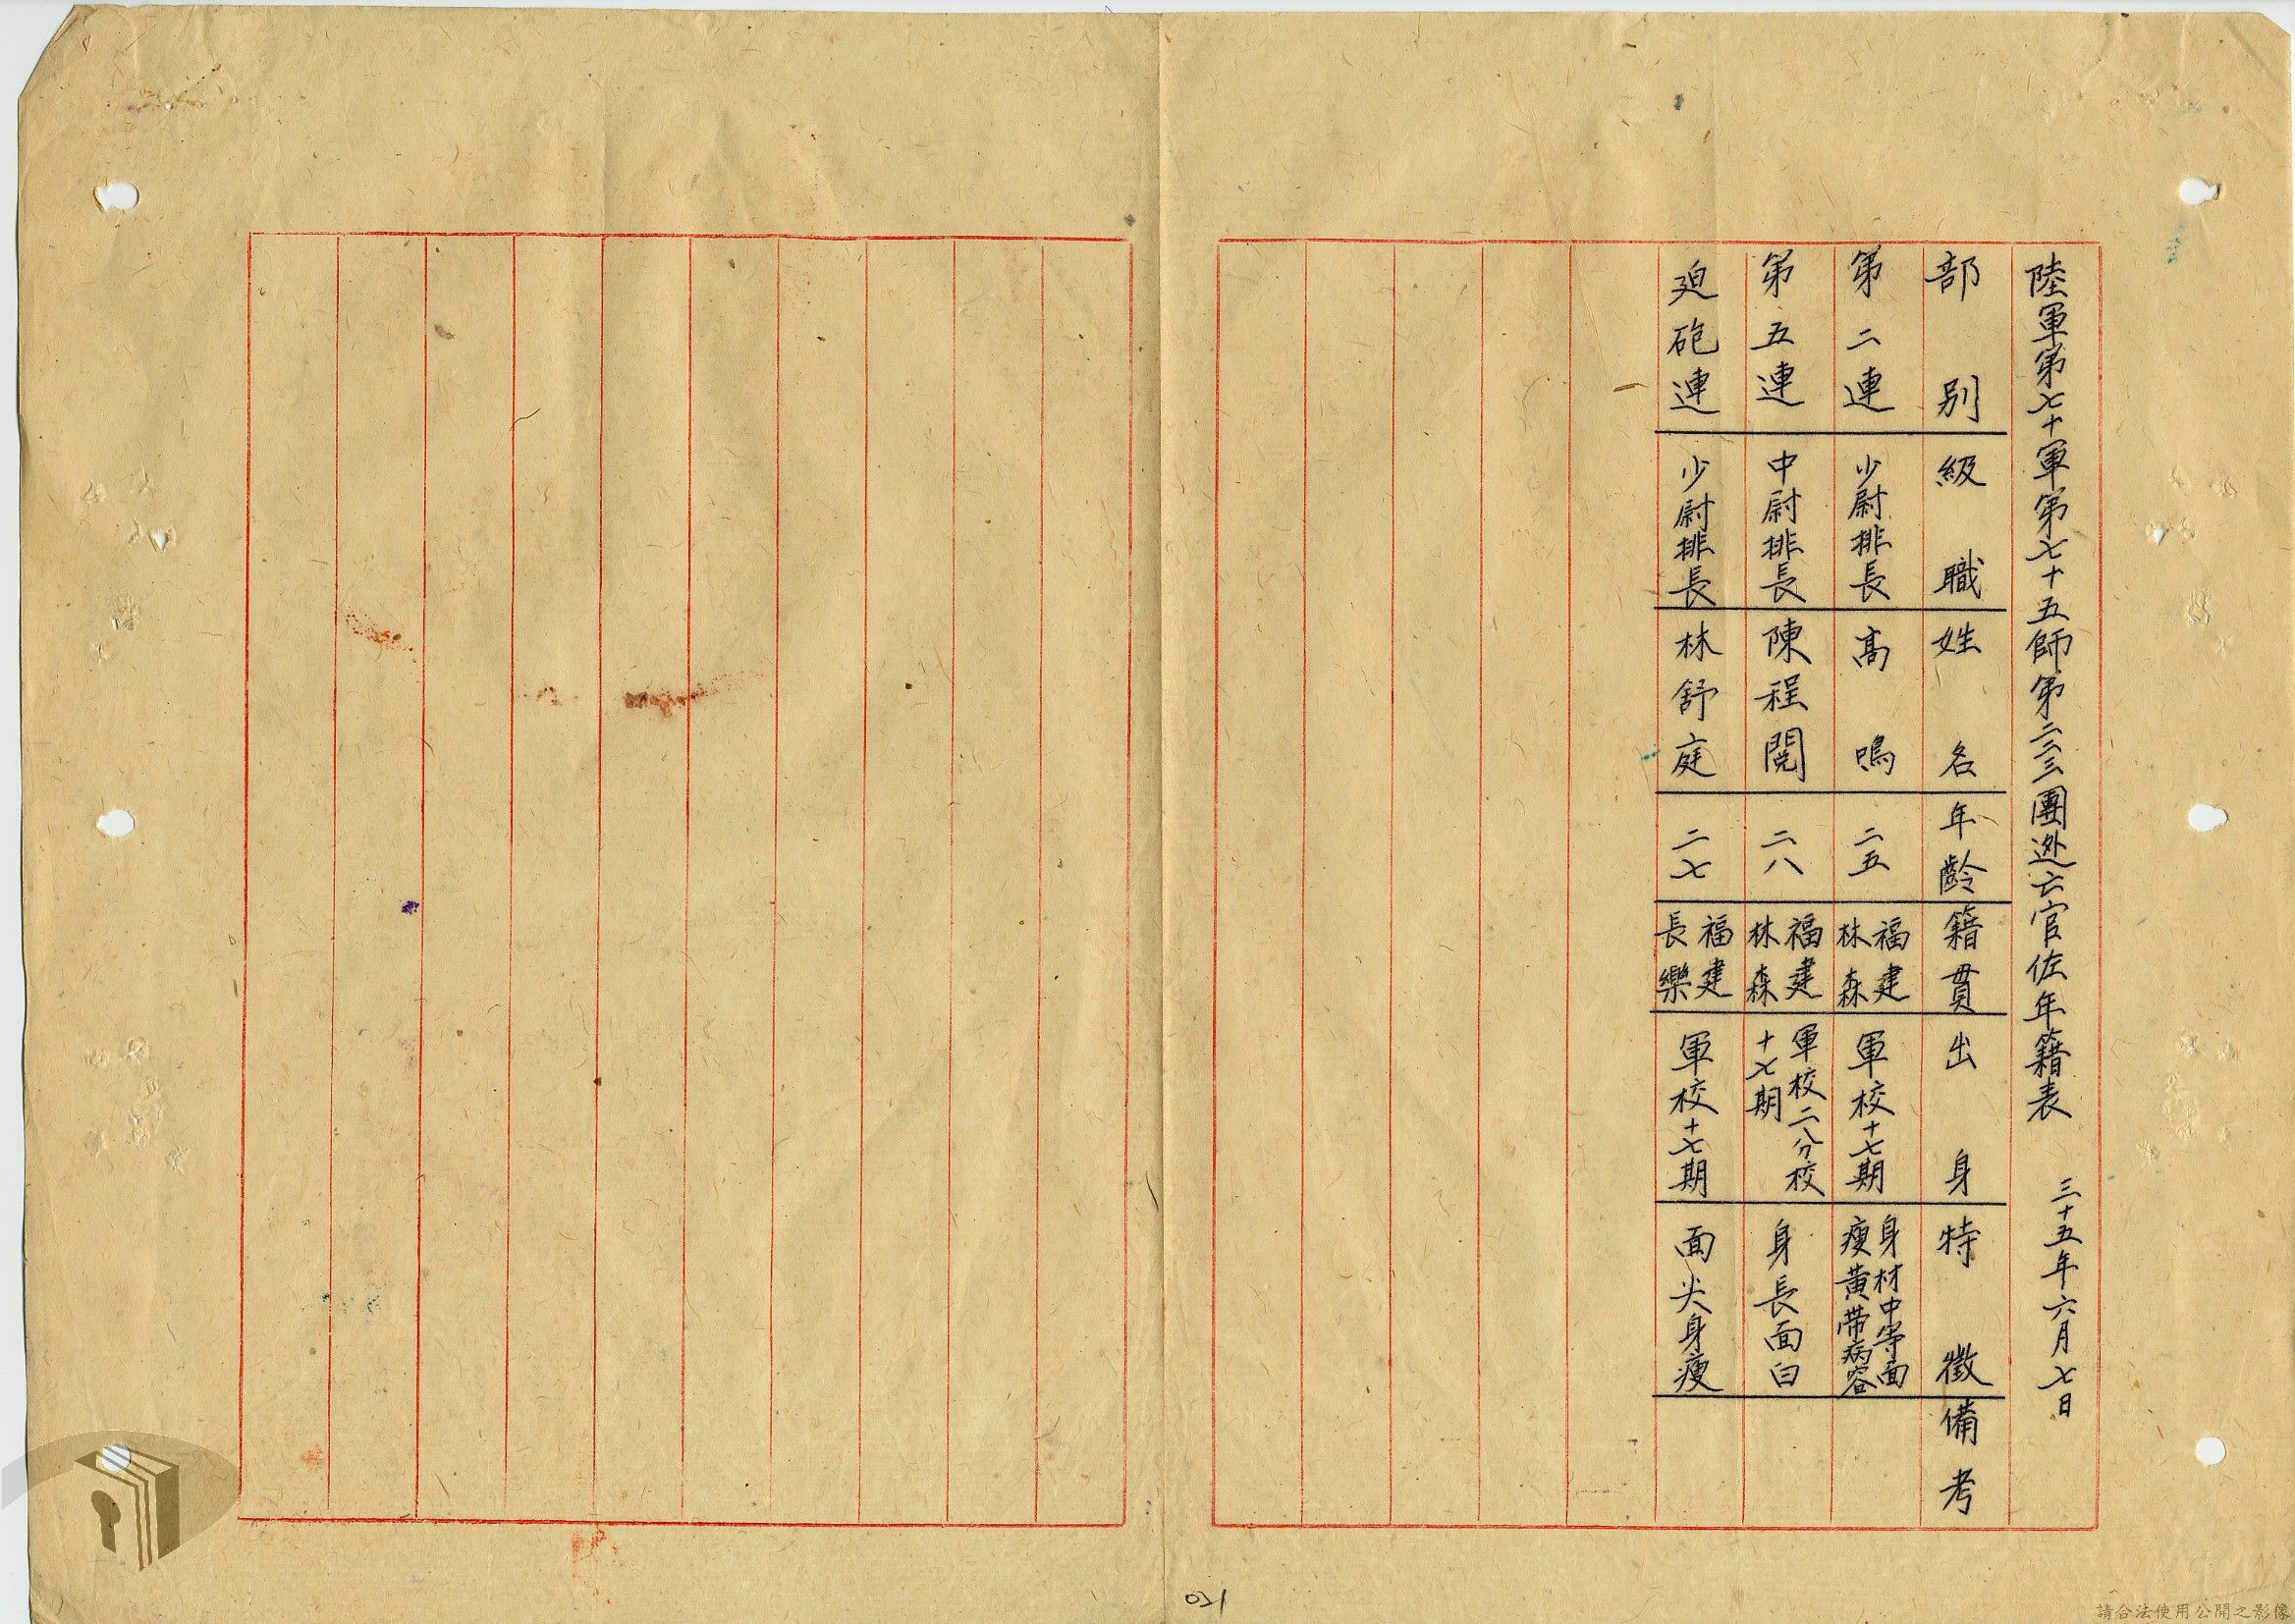 陸軍第七十軍第七十五師第二二三團逃亡官佐年籍表 三十五年六月七日
部別 級職 姓名 年齡 籍貫 出身 特徵 備考
第二連 少尉排長 高鳴 二五 福建林森 軍校十七期 身材中等面瘦黃帶病容
第五連 中尉排長 陳程閱 二八 福建林森 軍校二分校十七期 身長面白
迫砲連 少尉排長 林舒庭 二七 福建長樂 軍校十七期 面尖身瘦
021
請合法使用公開之影像